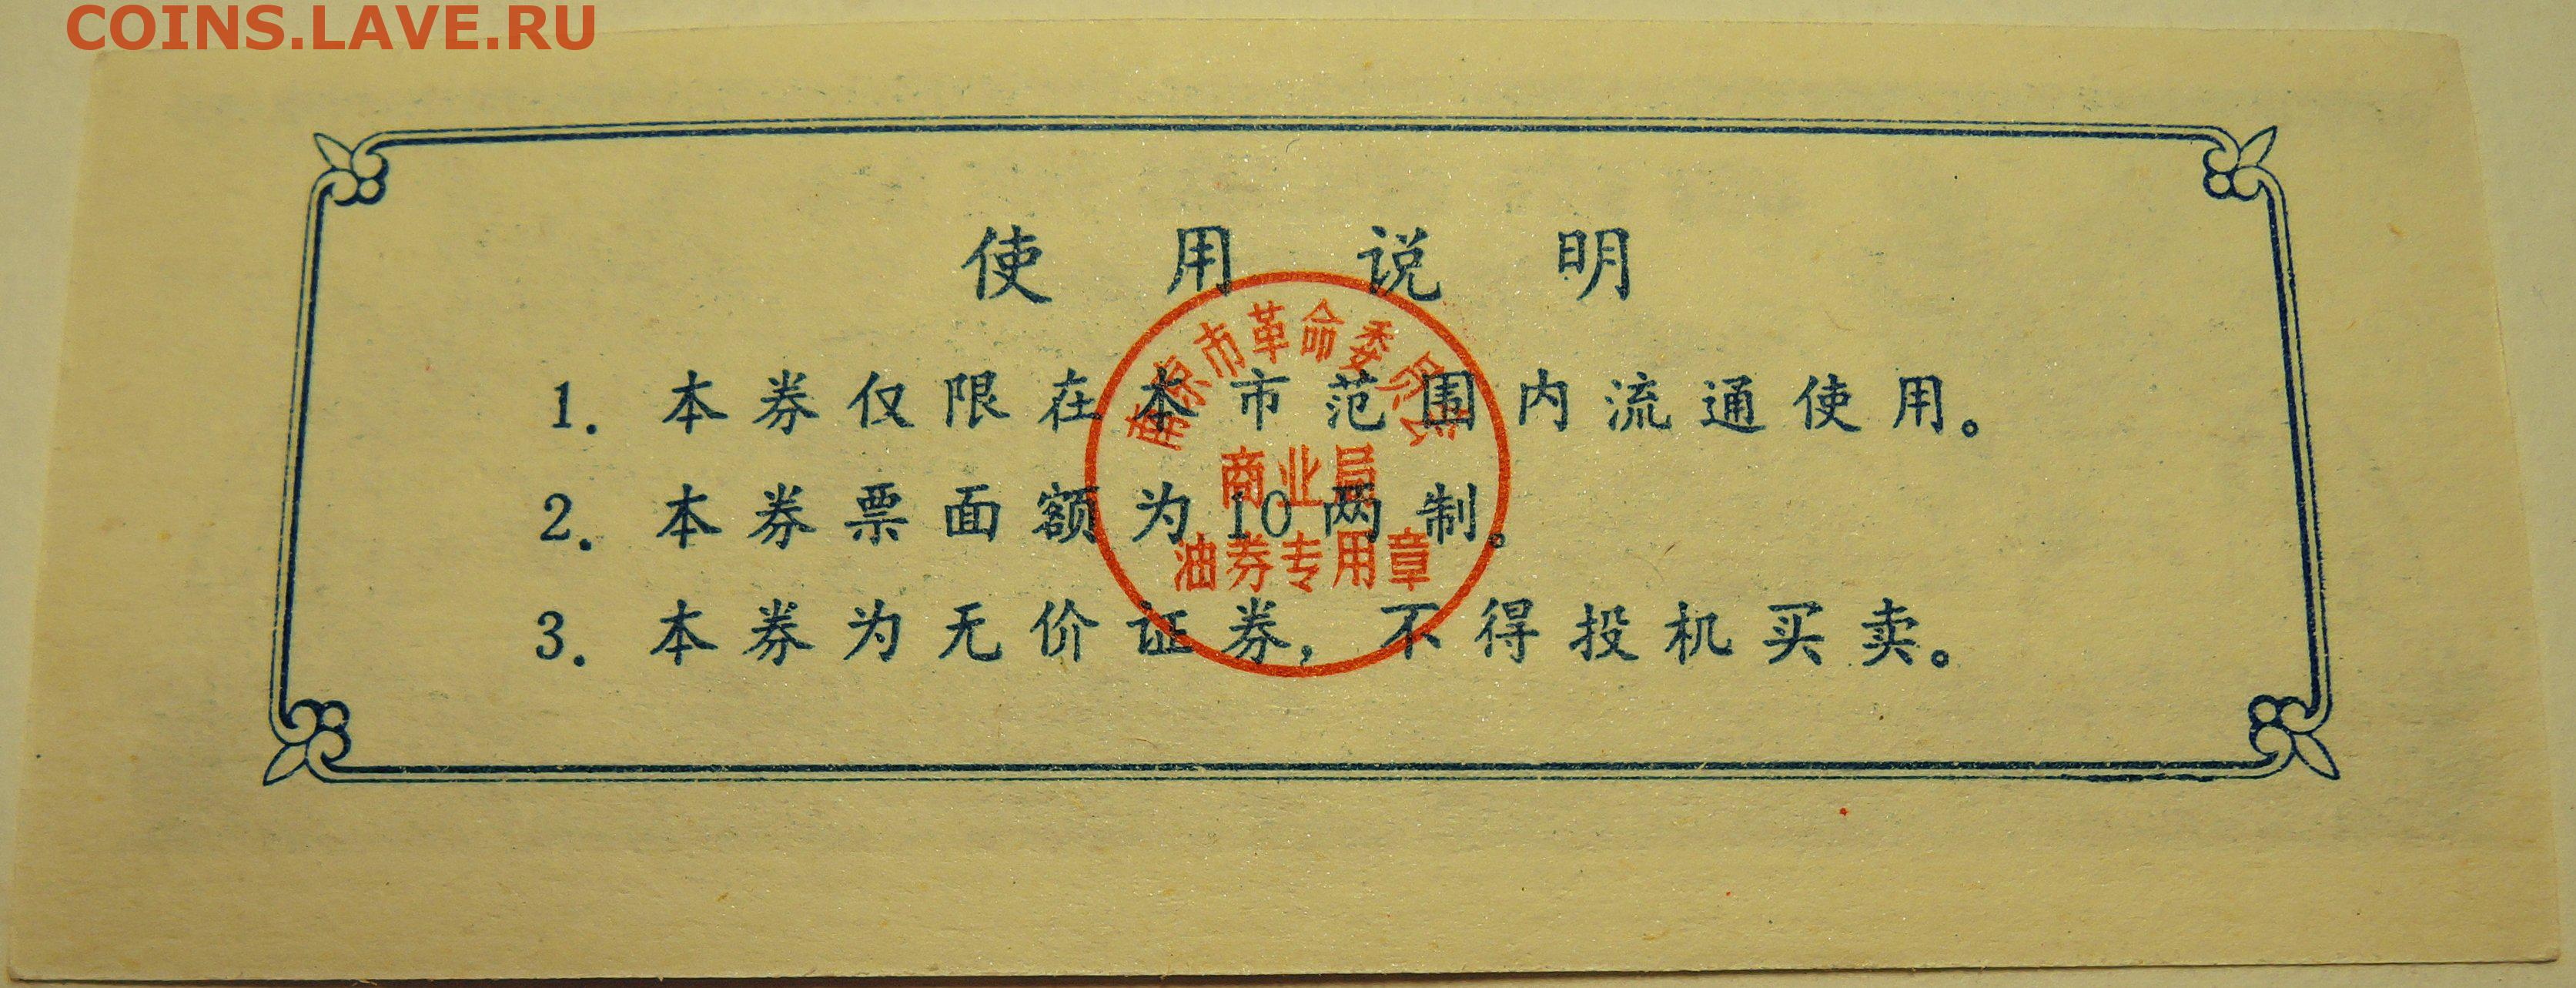 COINS.LAVE.RU
使用说明
南京市革命委员会
1. 本券仅限在本市范围内流通使用。
商业局
2. 本券票面额为10两制。
油券专用章
3. 本券为无价证券，不得投机买卖。